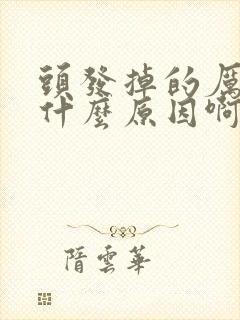 頭發掉的厲
什麼原因啊
隋雲華